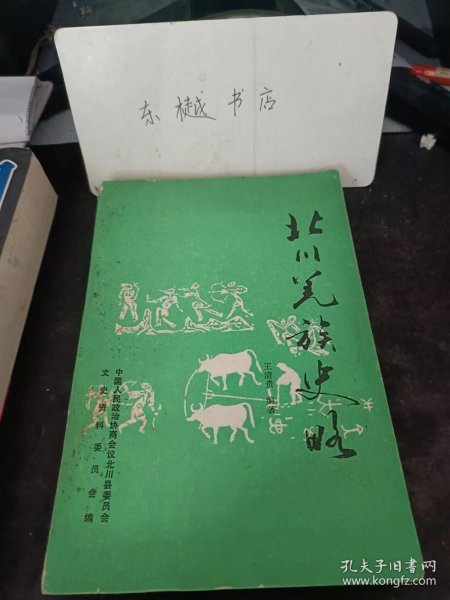 东樾书店
北川羌族史略
王清贵 编著
中国人民政治协商会议北川县委员会
文史资料委员会编
孔夫子旧书网
www.kongfz.com